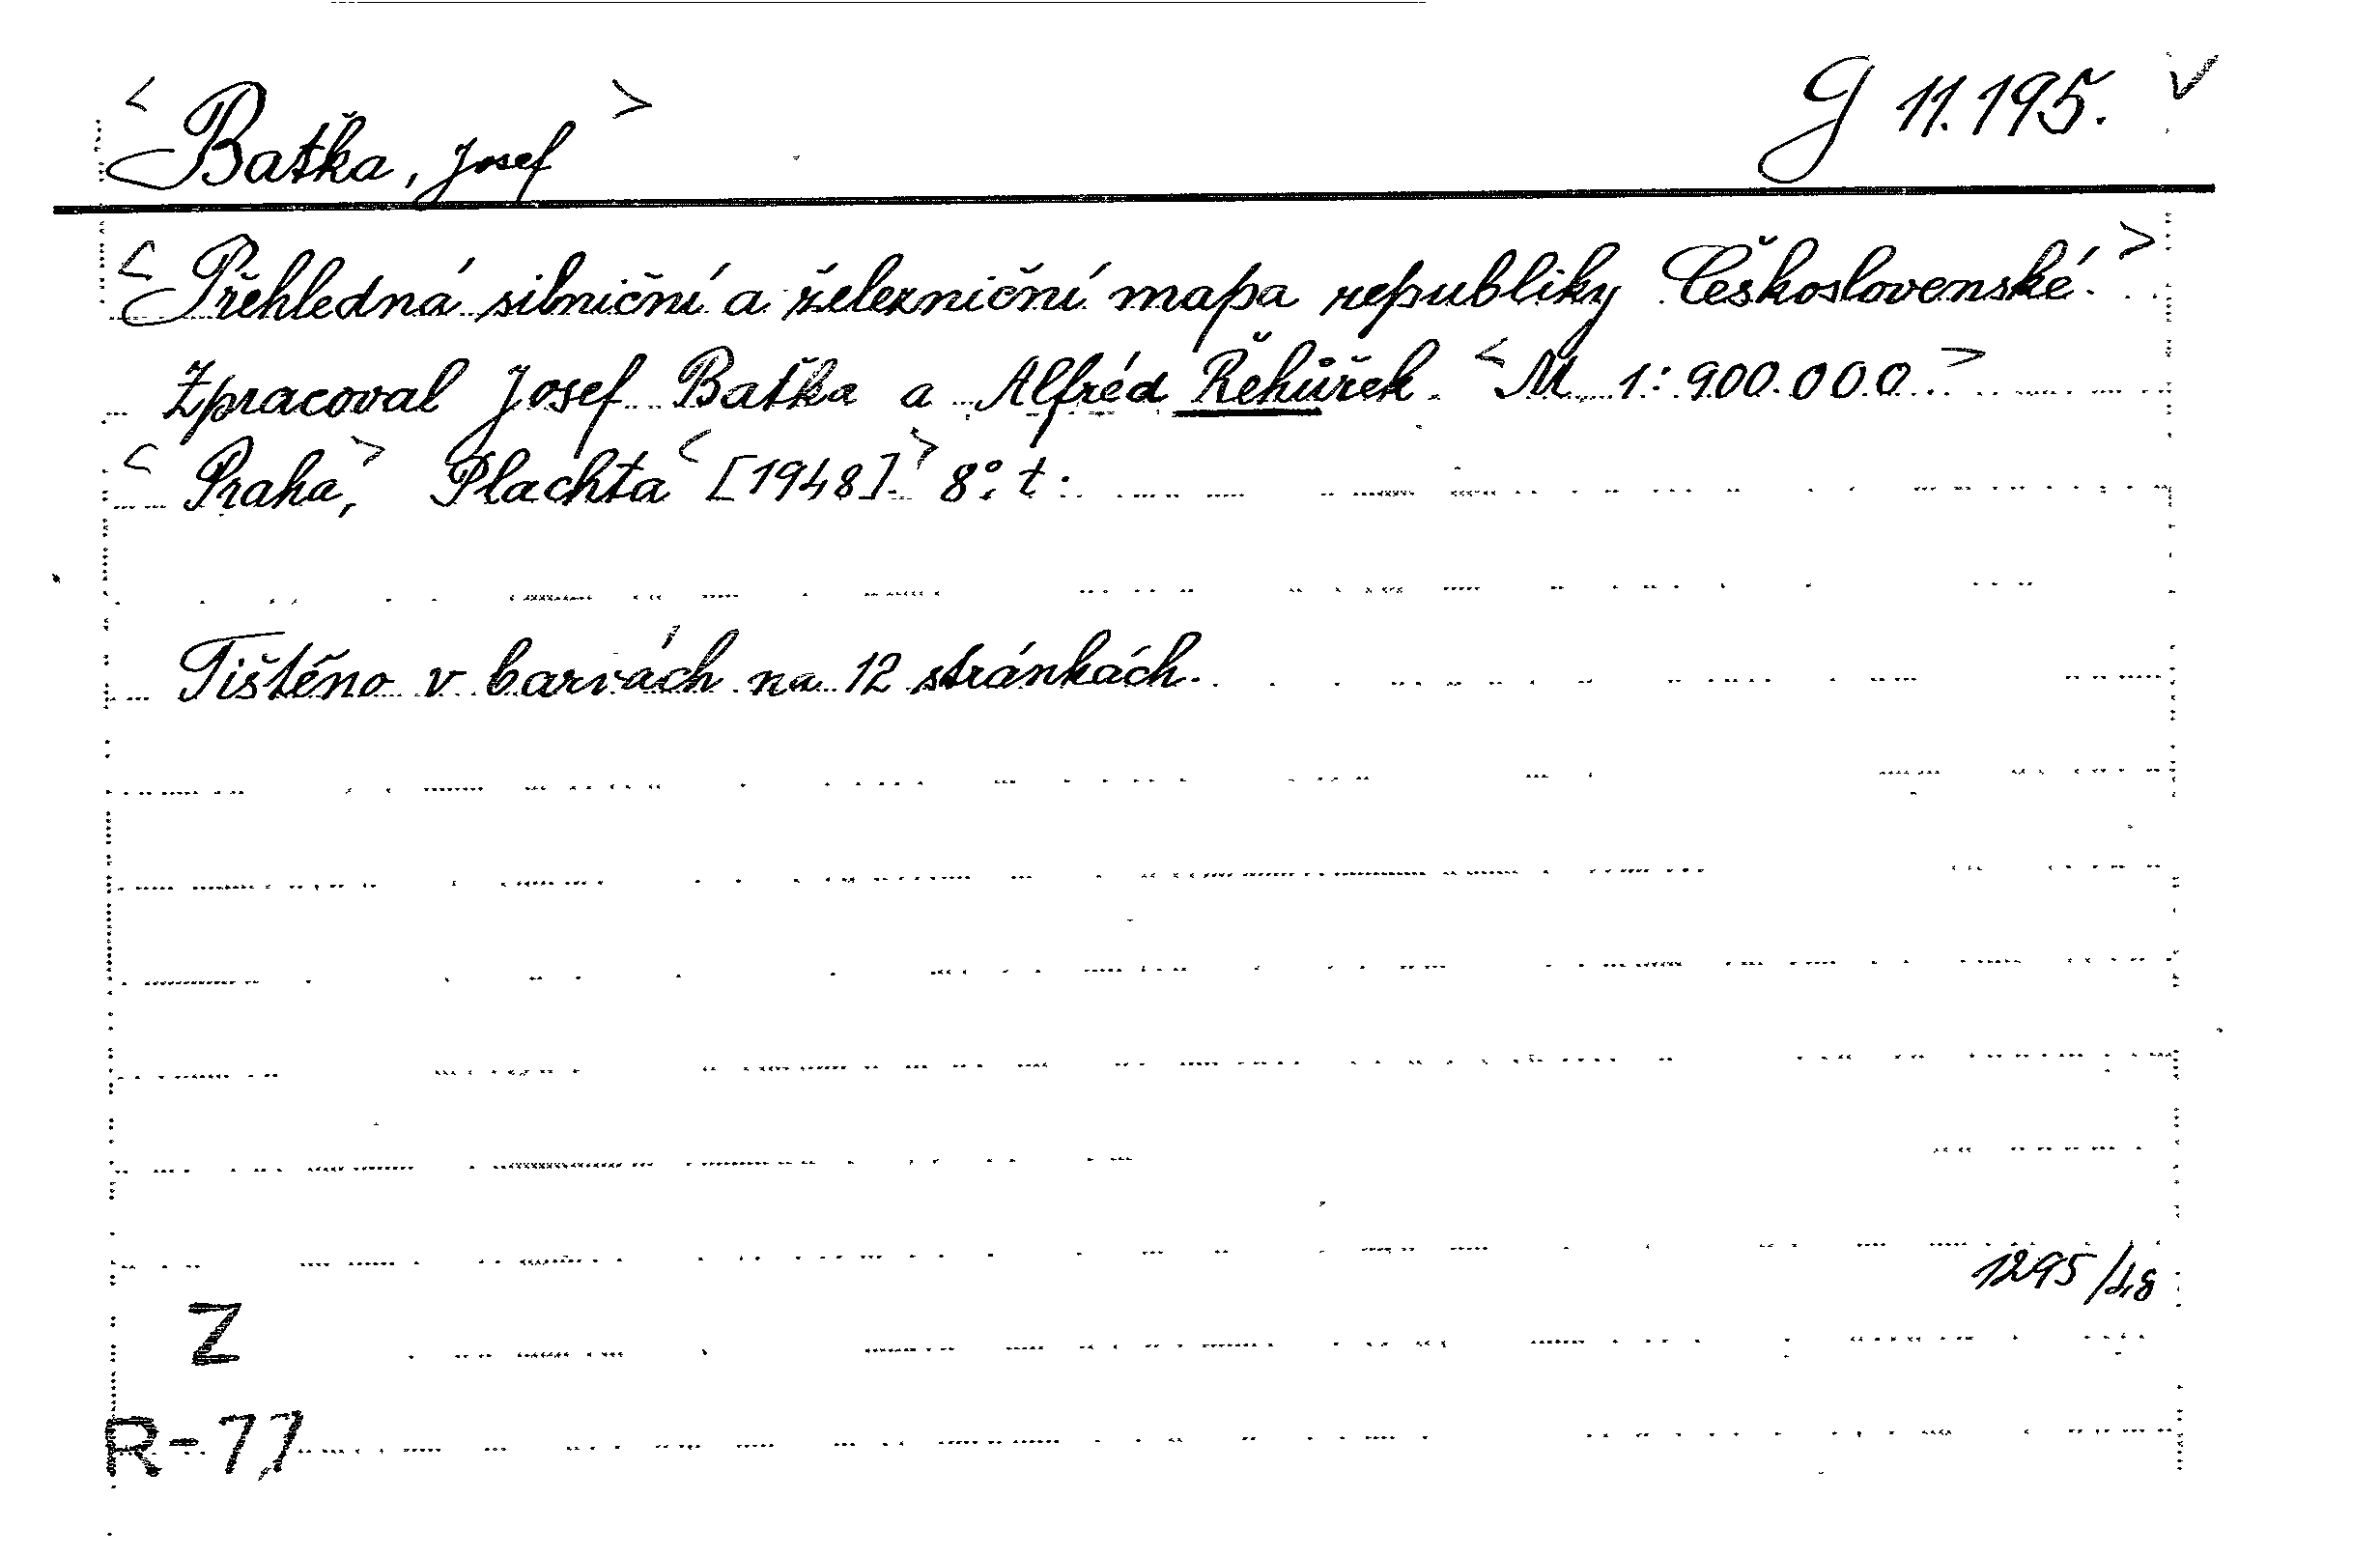 < Baťka, Josef > G 11.195. ✓
< Přehledná silniční a železniční mapa republiky Československé. >
Zpracoval Josef Baťka a Alfréd Řehůřek. < M 1:900.000. >
< Praha, > Plachta < [1948]. > 8°. t.
Tištěno v barvách na 12 stránkách.
1295/48
Z
R-77